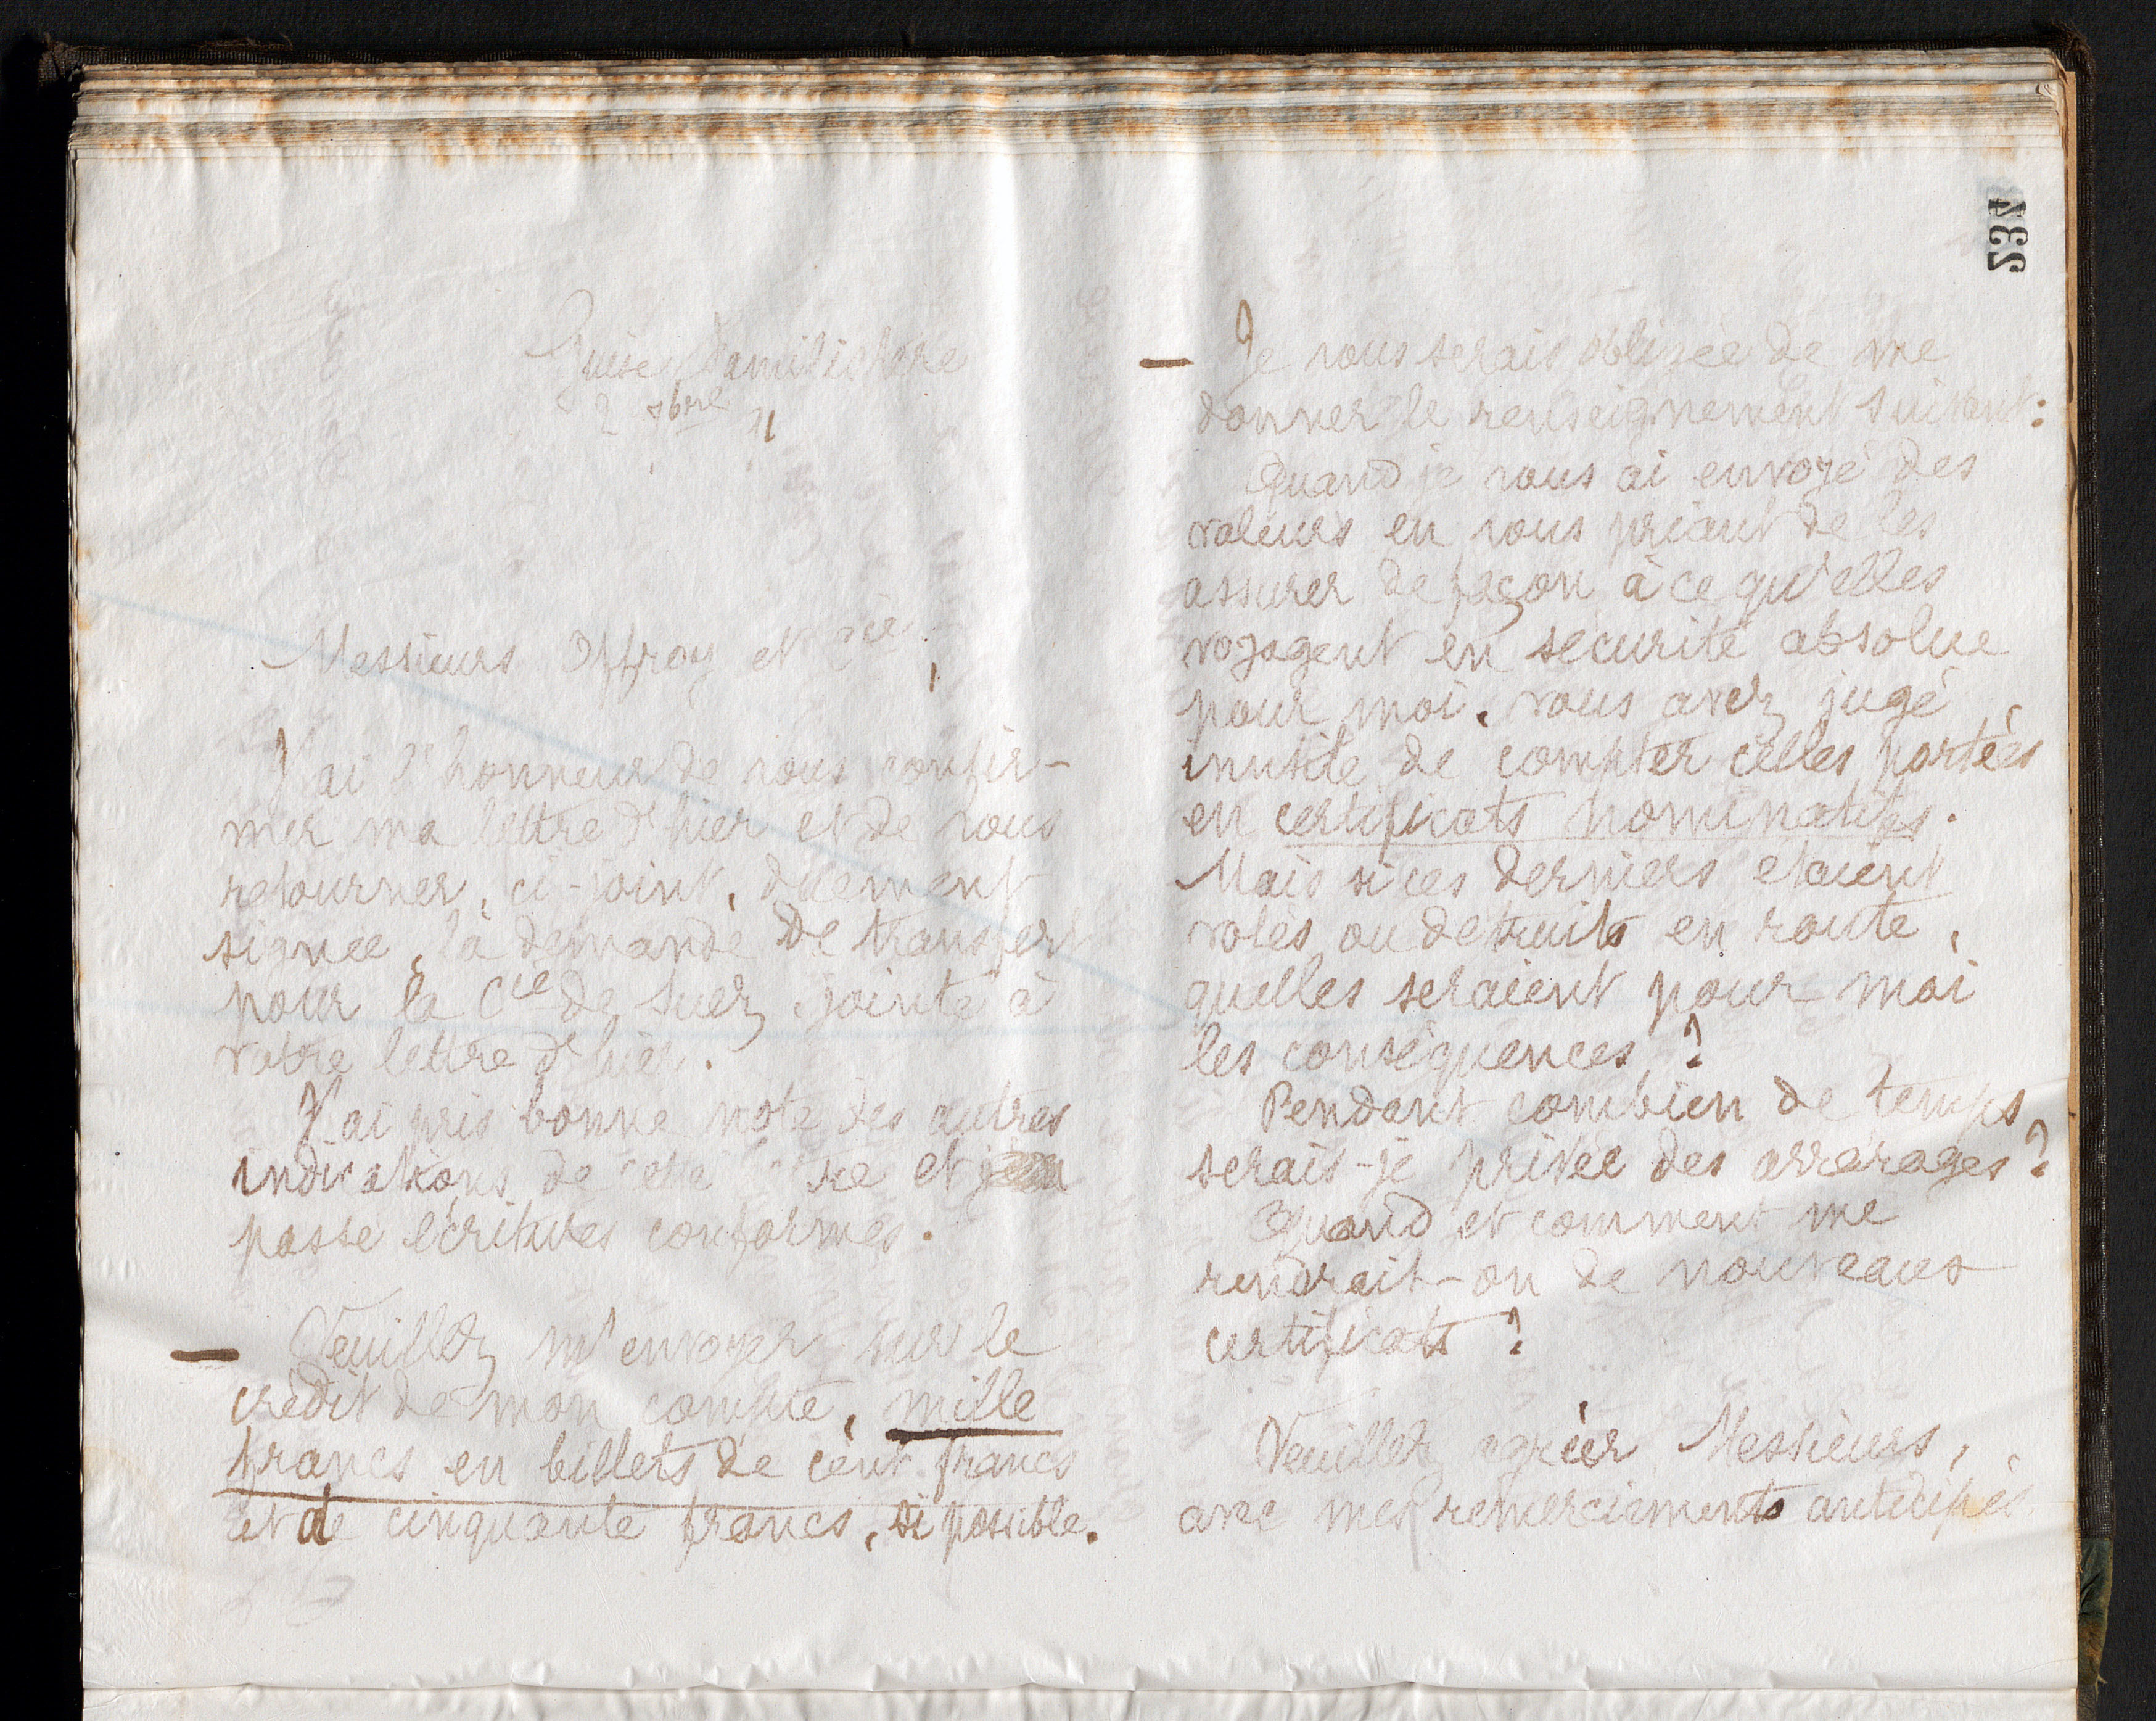 Guise Familistère
2 7bre 11
Messieurs Offroy et Cie,
J'ai l'honneur de vous confir-
mer ma lettre d'hier et de vous
retourner, ci-joint, dûement
signée, la demande de transfert
pour la Cie de Suez, jointe à
votre lettre d'hier.
J'ai pris bonne note des autres
indications de et j'en
passe écritures conformes.
— Veuillez m'envoyer sur le
crédit de mon compte, mille
francs en billets de cent francs
et de cinquante francs, si possible.
234
— Je vous serais obligée de me
donner le renseignement suivant :
Quand je vous ai envoyé des
valeurs en vous priant de les
assurer de façon à ce qu'elles
voyagent en sécurité absolue
pour moi, vous avez jugé
inutile de compter celles portées
en certificats nominatifs.
Mais si ces derniers étaient
volés ou détruits en route,
quelles seraient pour moi
les conséquences ?
Pendant combien de temps
serais-je privée des arrérages ?
Quand et comment me
rendrait-on de nouveaux
certificats ?
Veuillez agréer Messieurs,
avec mes remerciements anticipés